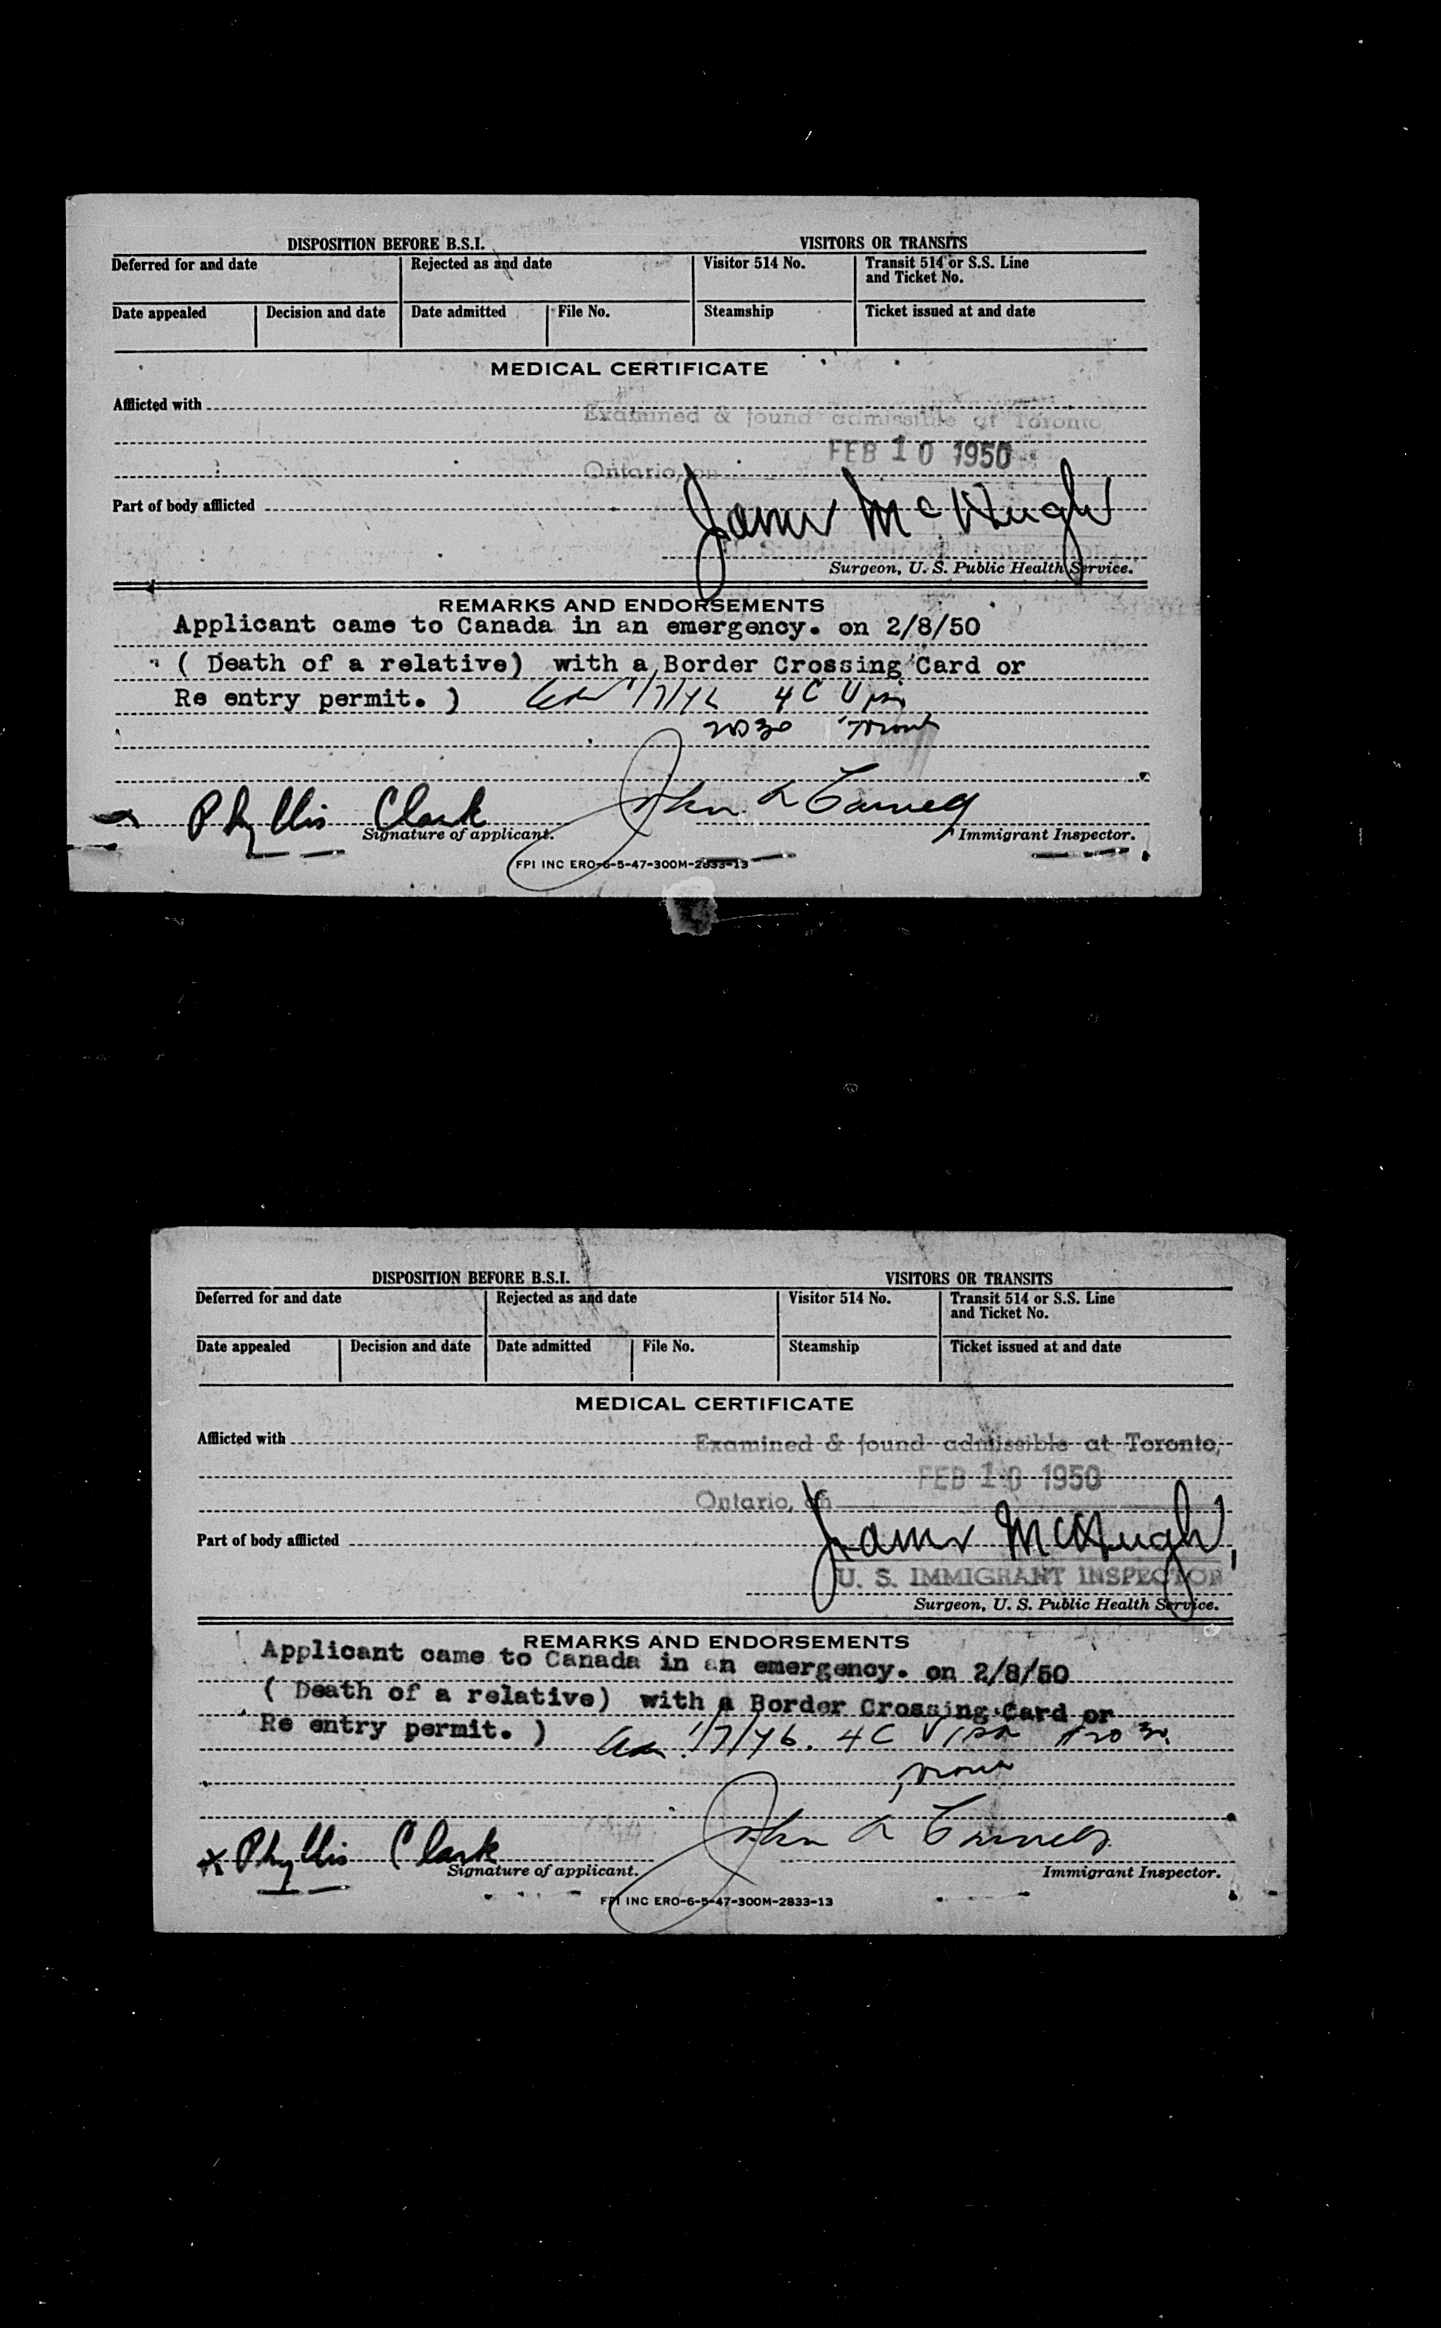 DISPOSITION BEFORE B.S.I. VISITORS OR TRANSITS
Deferred for and date Rejected as and date Visitor 514 No. Transit 514 or S.S. Line
and Ticket No.
Date appealed Decision and date Date admitted File No. Steamship Ticket issued at and date
MEDICAL CERTIFICATE
Afflicted with
Examined & found admissible at Toronto,
FEB 10 1950
Ontario, on
Part of body afflicted
James McHugh
Surgeon, U. S. Public Health Service.
REMARKS AND ENDORSEMENTS
Applicant came to Canada in an emergency. on 2/8/50
( Death of a relative) with a Border Crossing Card or
Re entry permit. ) 1/7/46 4 C Visa
2030
Phyllis Clark John L
Signature of applicant. Immigrant Inspector.
FPI INC ERO-6-5-47-300M-2833-13
DISPOSITION BEFORE B.S.I. VISITORS OR TRANSITS
Deferred for and date Rejected as and date Visitor 514 No. Transit 514 or S.S. Line
and Ticket No.
Date appealed Decision and date Date admitted File No. Steamship Ticket issued at and date
MEDICAL CERTIFICATE
Afflicted with
Examined & found admissible at Toronto,
FEB 10 1950
Ontario, on
Part of body afflicted
James McHugh
U. S. IMMIGRANT INSPECTOR
Surgeon, U. S. Public Health Service.
REMARKS AND ENDORSEMENTS
Applicant came to Canada in an emergency. on 2/8/50
( Death of a relative) with a Border Crossing Card or
Re entry permit. ) 1/7/46. 4 C Visa
x Phyllis Clark John L
Signature of applicant. Immigrant Inspector.
FPI INC ERO-6-5-47-300M-2833-13